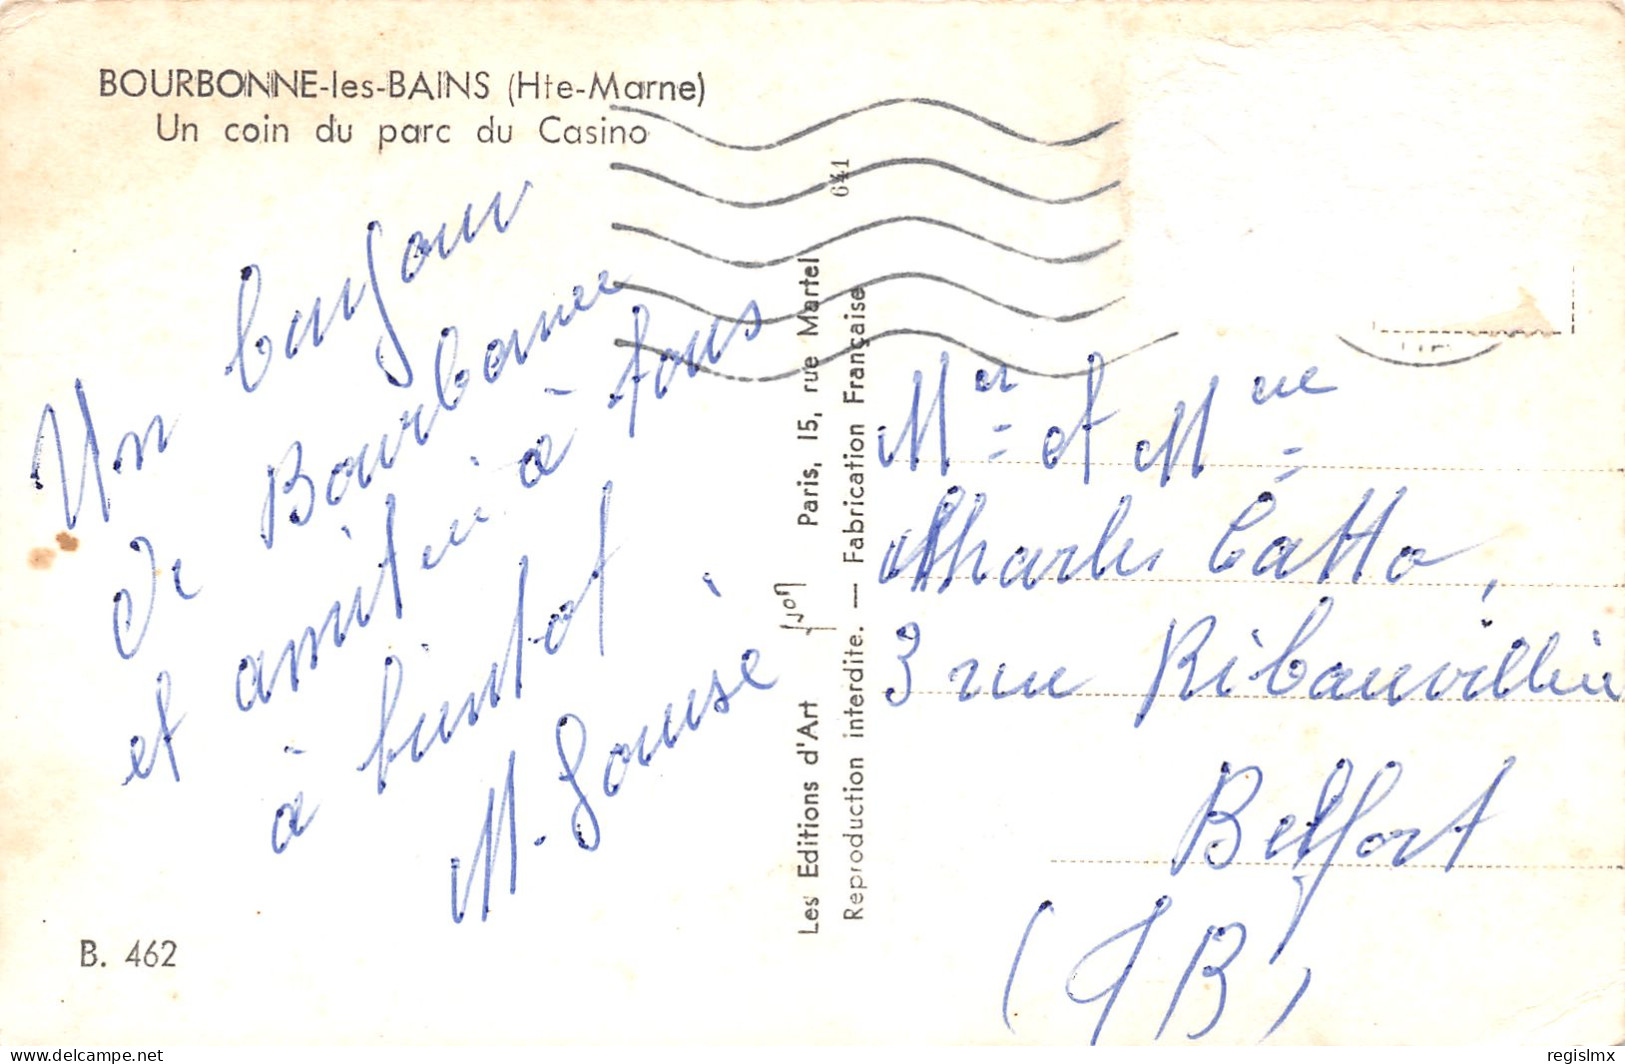 BOURBONNE-les-BAINS (Hte-Marne)
Un coin du parc du Casino
Un bonjour
de Bourbonne
et amitiés à tous
à bientôt
M. Louise
B. 462
Les Editions d'Art YVON Paris, 15, rue Martel
Reproduction interdite. — Fabrication Française
641
Mr et Mme
Charles Catto,
3 rue Ribauvillier
Belfort
(TB)
delcampe.net
regislmx